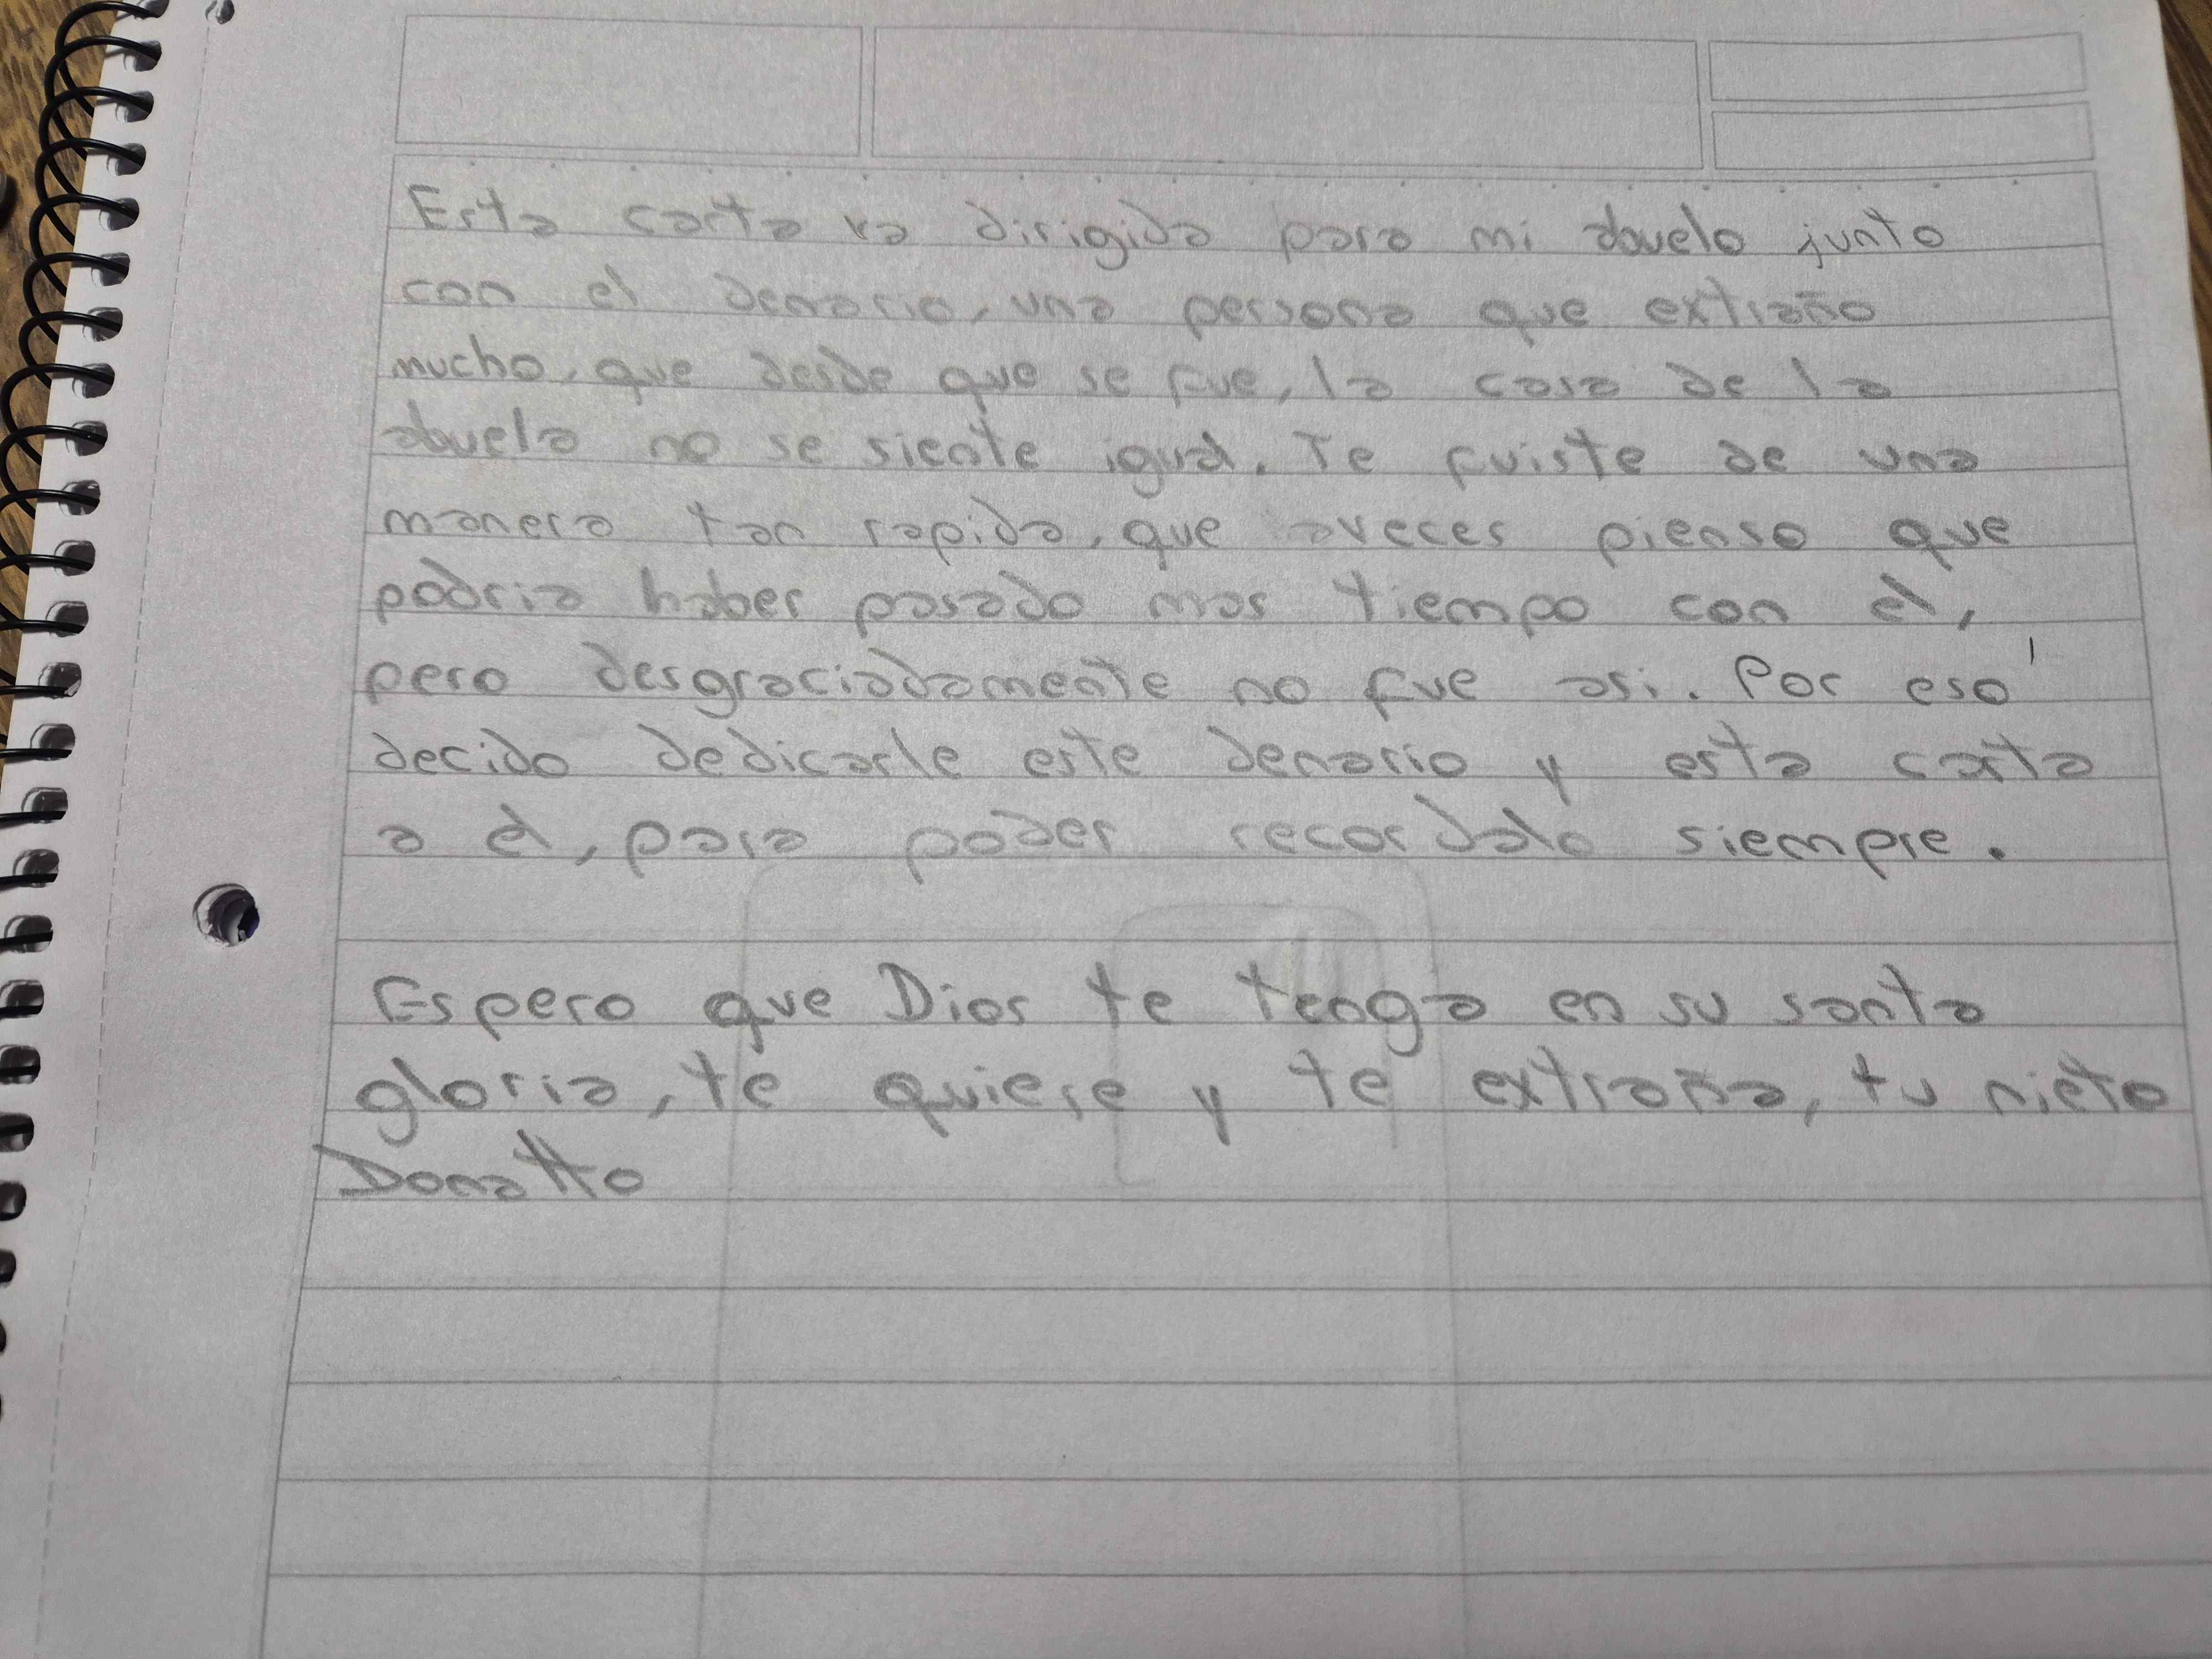 Esta carta va dirigida para mi abuelo junto
con el denario, una persona que extraño
mucho, que desde que se fue, la casa de la
abuela no se siente igual. Te fuiste de una
manera tan rapida, que aveces pienso que
podria haber pasado mas tiempo con el,
pero desgraciadamente no fue asi. Por eso
decido dedicarle este denario y esta carta
a el, para poder recordalo siempre.
Espero que Dios te tenga en su santa
gloria, te quiere y te extraña, tu nieto
Donatto